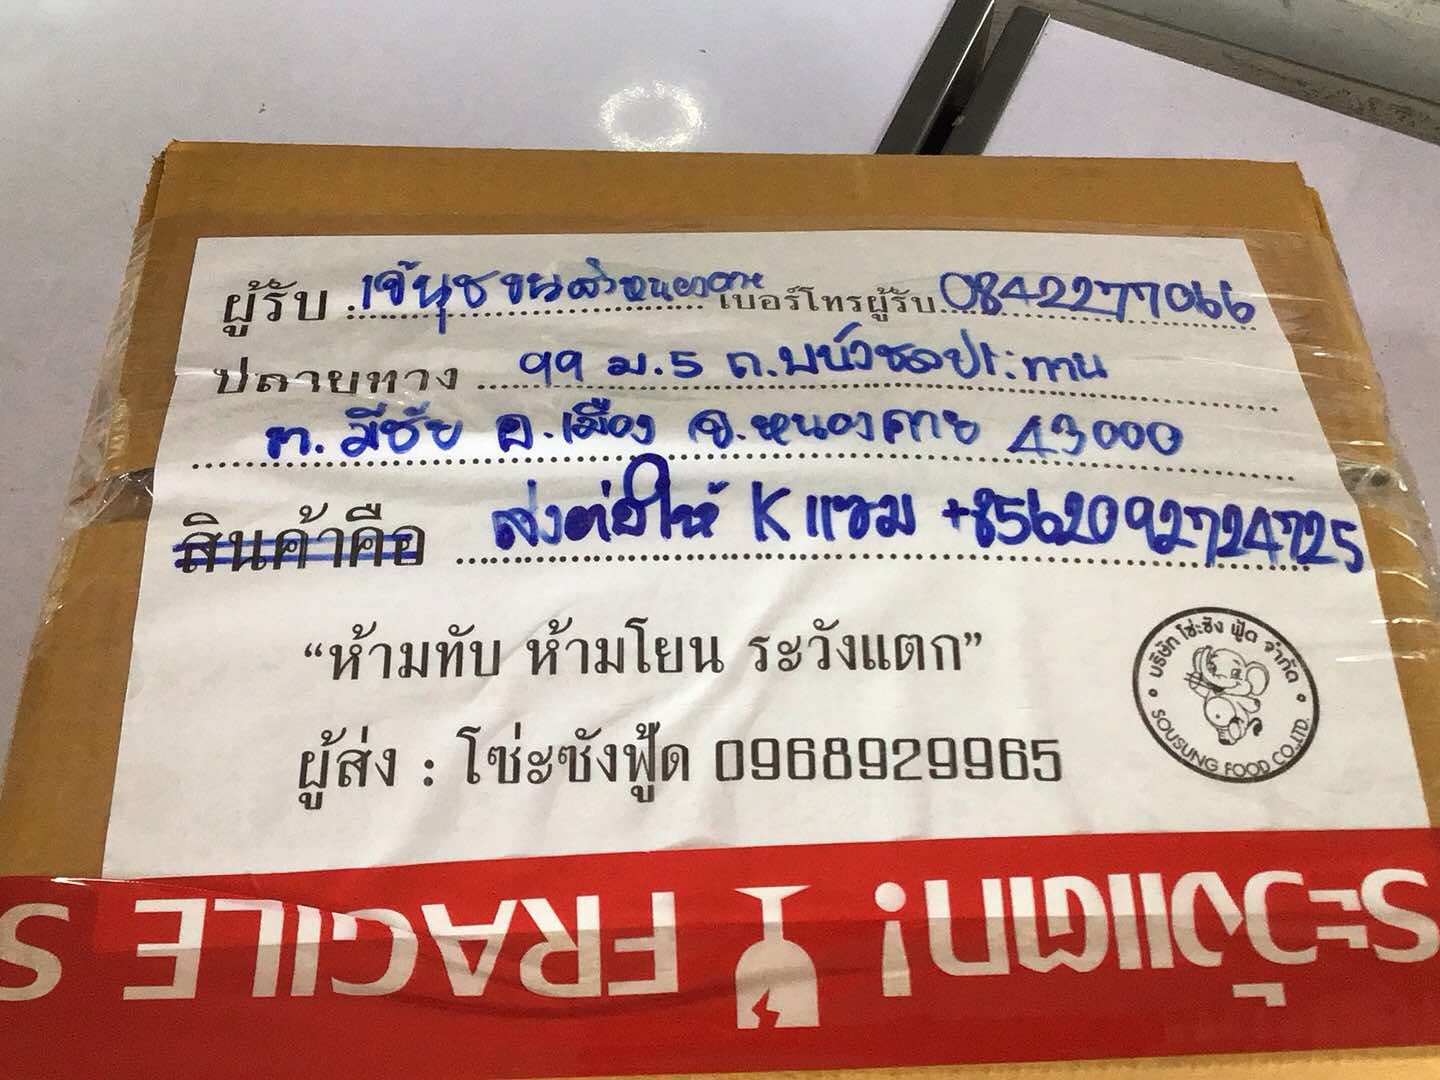 ผู้รับ เจ๊นุชขนส่งหนองคาย เบอร์โทรผู้รับ 0842277066
ปลายทาง 99 ม.5 ถ.พนังชลประทาน
ต.มีชัย อ.เมือง จ.หนองคาย 43000
สินค้าคือ ส่งต่อให้ K แซม +8562092724725
“ห้ามทับ ห้ามโยน ระวังแตก”
ผู้ส่ง : โซ่ะซังฟู้ด 0968929965
บริษัท โซ่ะซัง ฟู้ด จำกัด
SOUSUNG FOOD CO.,LTD.
ระวังแตก! FRAGILE